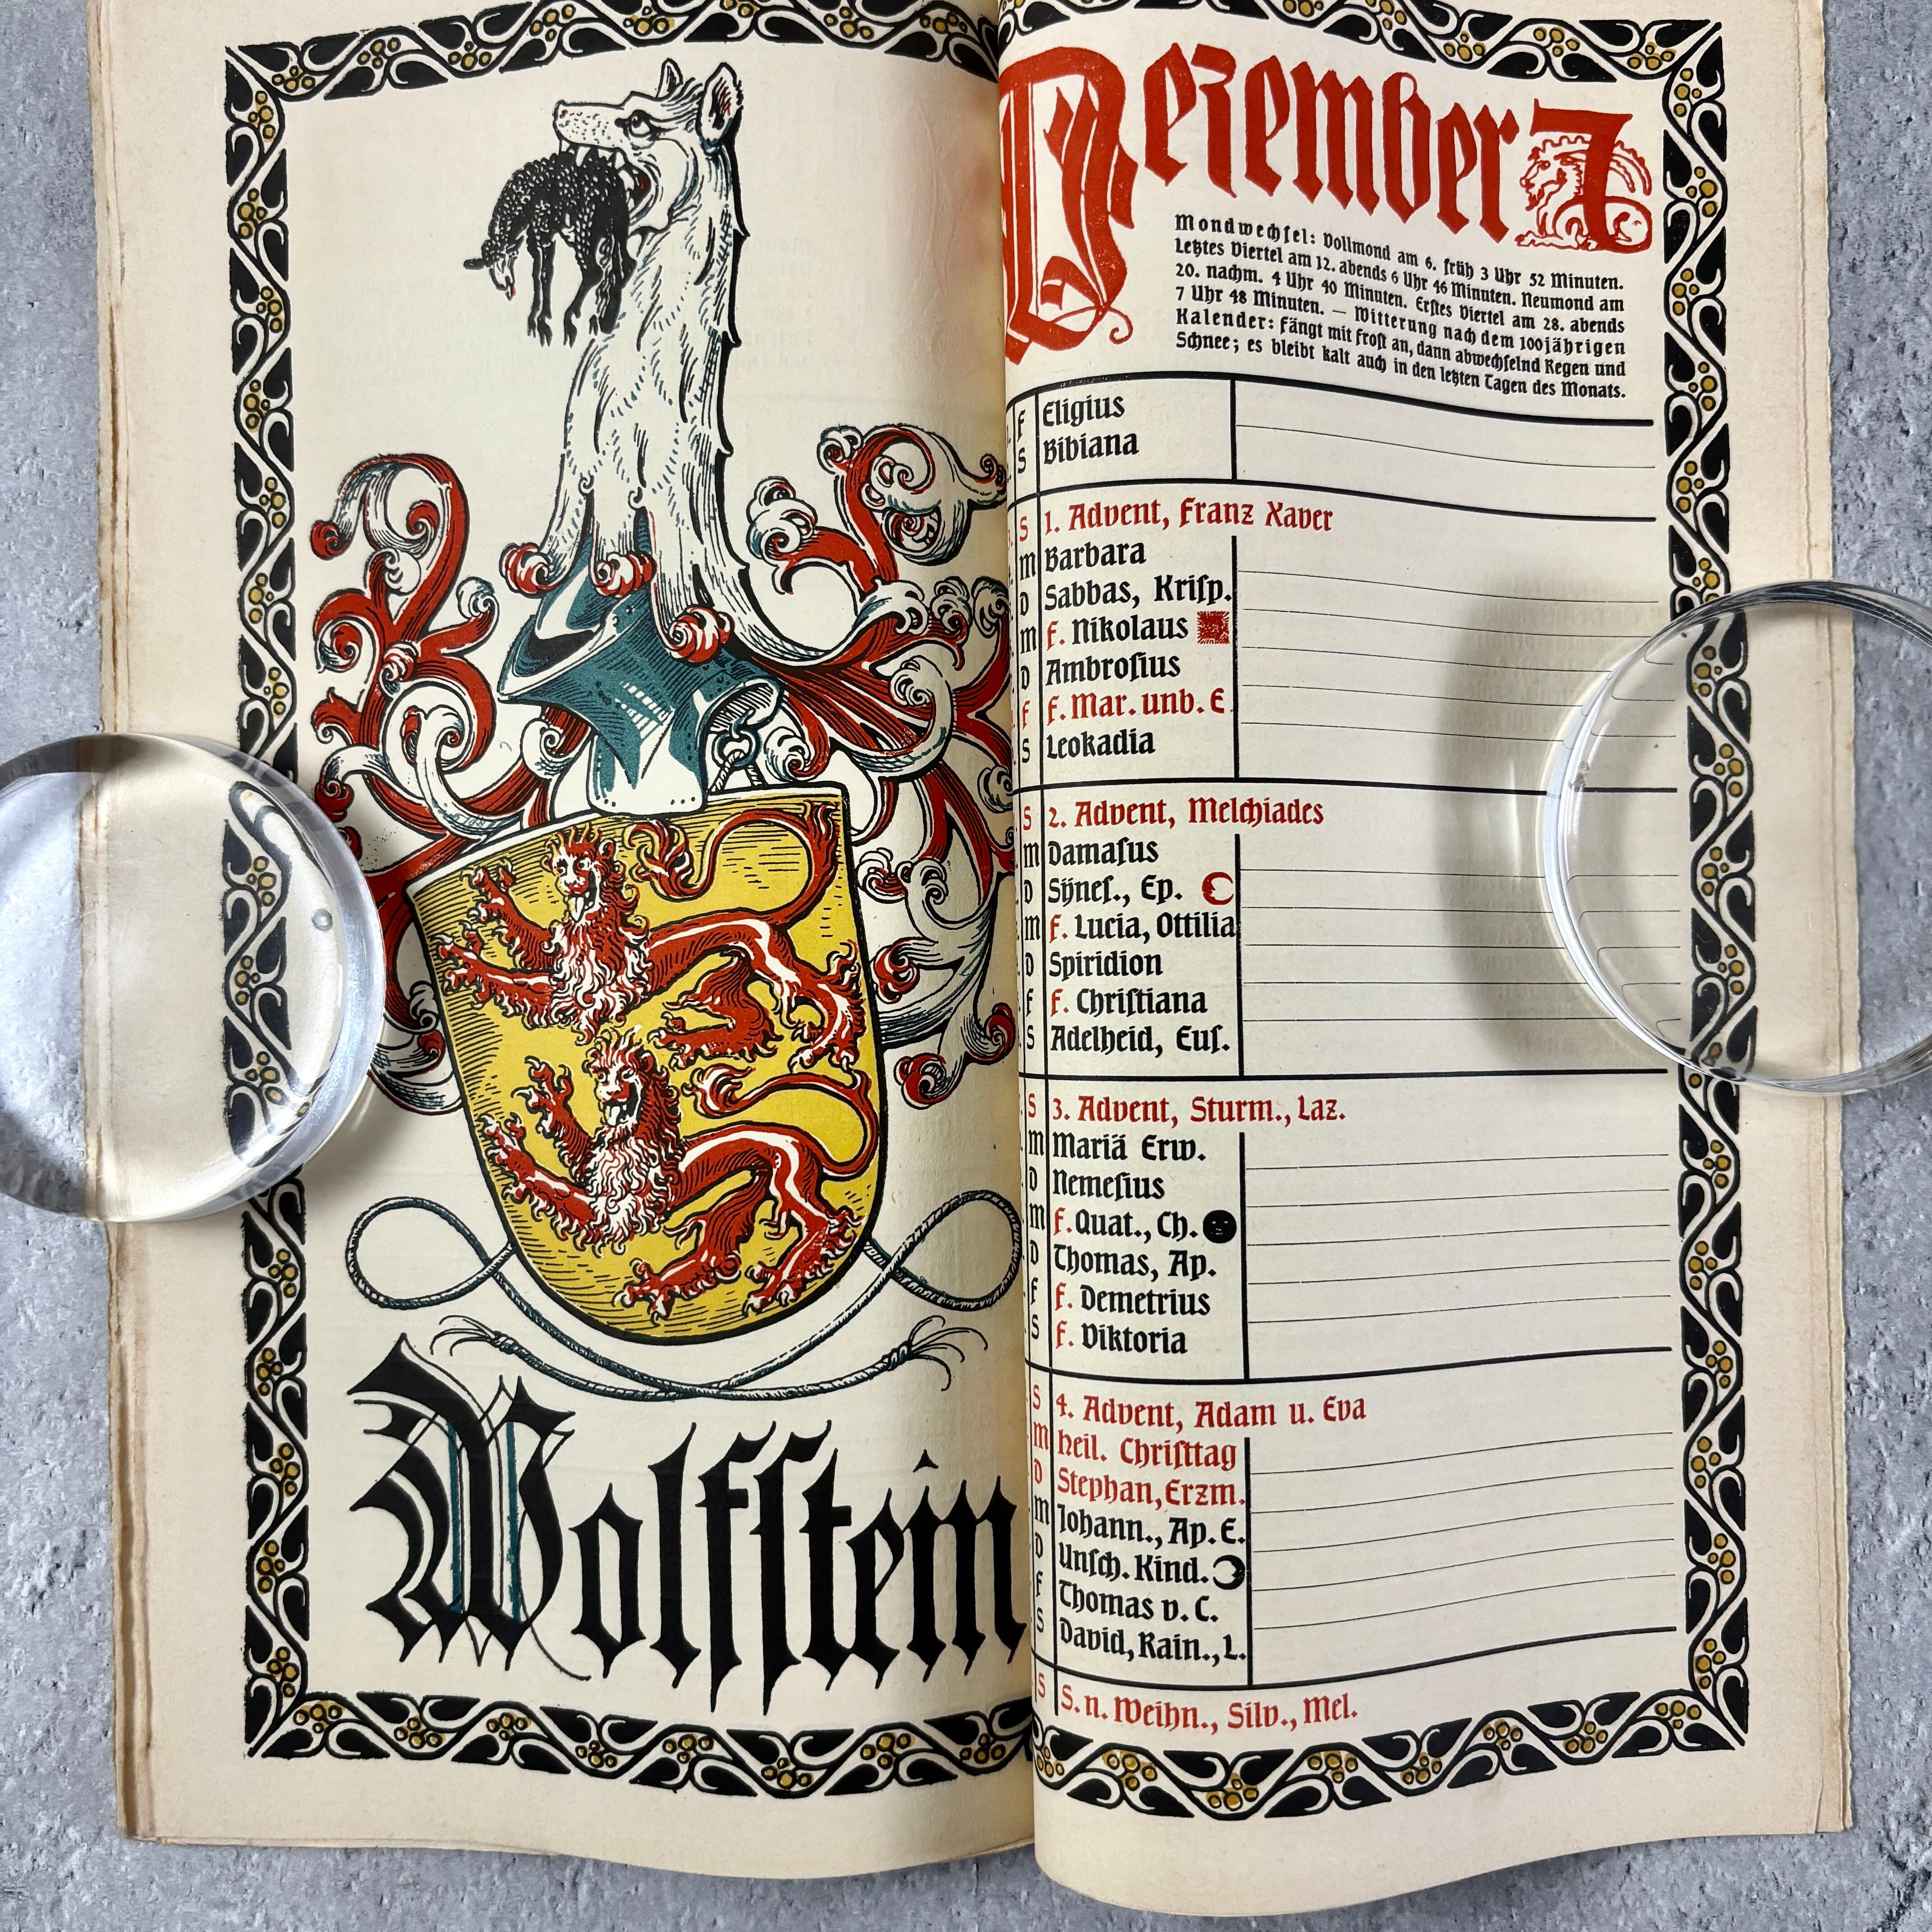 Wolfſtein
Dezember
Mondwechſel: Vollmond am 6. früh 3 Uhr 52 Minuten.
Letztes Viertel am 12. abends 6 Uhr 46 Minuten. Neumond am
20. nachm. 4 Uhr 40 Minuten. Erſtes Viertel am 28. abends
7 Uhr 48 Minuten. — Witterung nach dem 100jährigen
Kalender: Fängt mit Froſt an, dann abwechſelnd Regen und
Schnee; es bleibt kalt auch in den letzten Tagen des Monats.
F Eligius
S Bibiana
S 1. Advent, Franz Xaver
M Barbara
D Sabbas, Kriſp.
M F. Nikolaus
D Ambroſius
F F. Mar. unb. E
S Leokadia
S 2. Advent, Melchiades
M Damaſus
D Sÿneſ., Ep.
M F. Lucia, Ottilia
D Spiridion
F F. Chriſtiana
S Adelheid, Euſ.
S 3. Advent, Sturm., Laz.
M Mariä Erw.
D Nemeſius
M F. Quat., Ch.
D Thomas, Ap.
F F. Demetrius
S F. Viktoria
S 4. Advent, Adam u. Eva
M Heil. Chriſttag
D Stephan, Erzm.
M Johann., Ap. E.
D Unſch. Kind.
F Thomas v. C.
S David, Rain., L.
S S. n. Weihn., Silv., Mel.